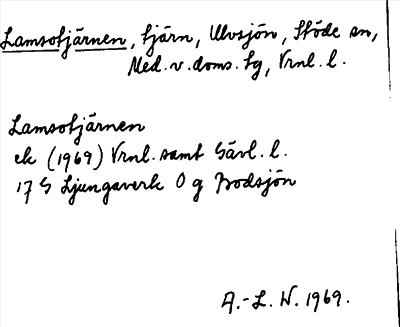 Lamsotjärnen, tjärn, Ulvsjön, Stöde sn,
Med.v.doms.tg, Vrnl.l.
Lamsotjärnen
ek (1969) Vrnl. samt Gävl.l.
17 G Ljungaverk O g Bodsjön
A.-L. W. 1969.